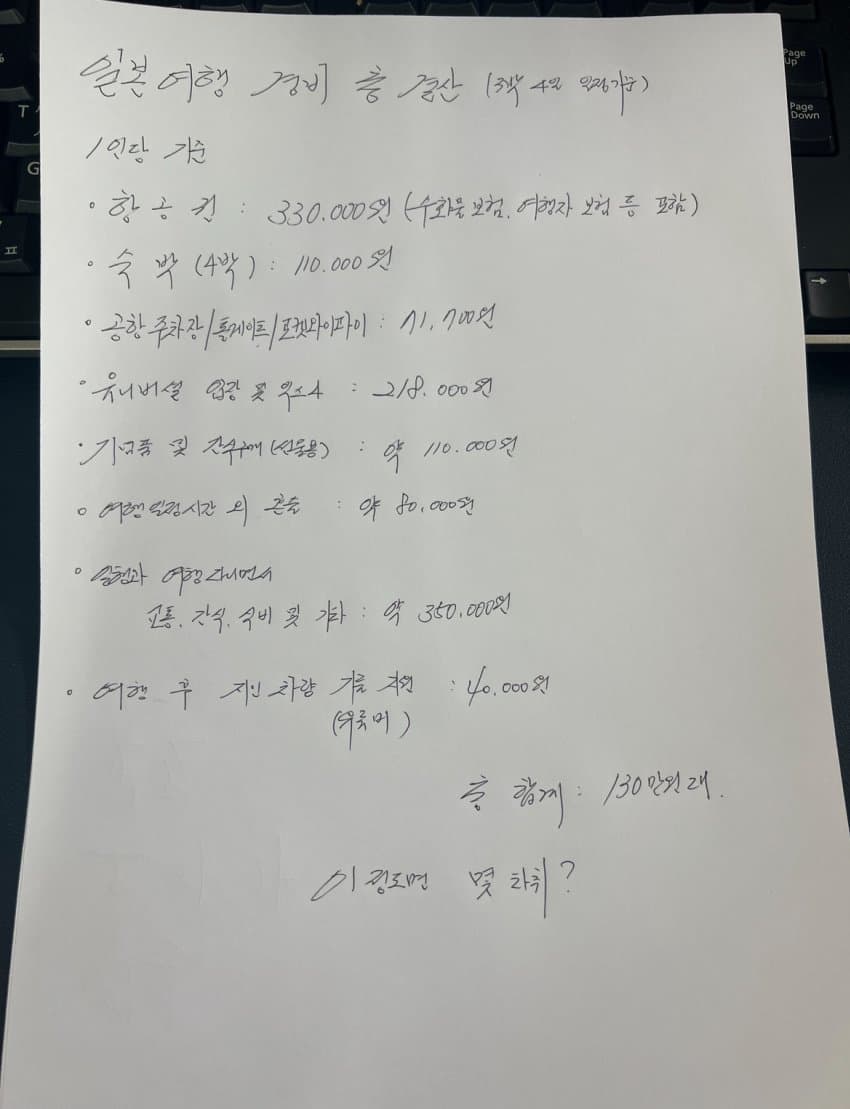 일본 여행 경비 총 결산 (3박 4일 일정기준)
1인당 기준
• 항공권 : 330.000원 (수화물 보험, 여행자 보험 등 포함)
• 숙박 (4박) : 110.000원
• 공항 주차장/톨게이트/포켓와이파이 : 71,700원
• 유니버설 입장 및 익스4 : 218.000원
• 기념품 및 간식구매(선물용) : 약 110.000원
• 여행일정시간 외 혼술 : 약 80,000원
• 일행과 여행 다니면서
교통, 간식, 식비 및 기타 : 약 350,000원
• 여행 후 지인 차량 기름 지원 : 40,000원
총 합계 : 130만원대.
이정도면 몇 타취?
Page Up
Page Down
T
G
ㅍ
%